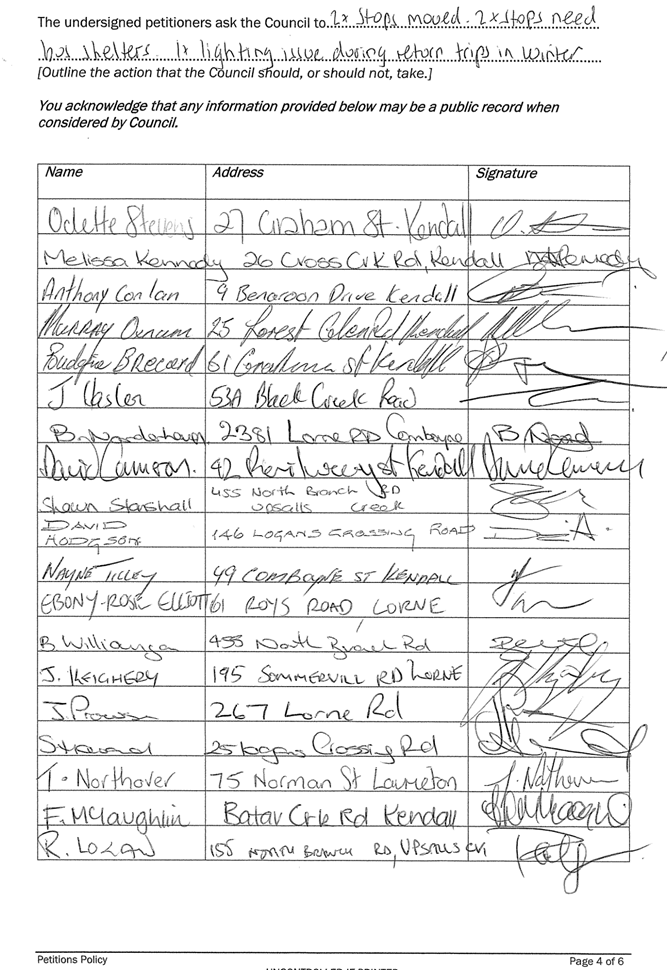 The undersigned petitioners ask the Council to 2x stops moved. 2x stops need
bus shelters. 1x lighting issue during return trips in winter
[Outline the action that the Council should, or should not, take.]
You acknowledge that any information provided below may be a public record when
considered by Council.
Name Address Signature
Odette Stevens 27 Graham St. Kendall
Melissa Kennedy 26 Cross Crk Rd, Kendall
Anthony Conlan 9 Benaroon Drive Kendall
Murray 25 Forest Glen Rd Kendall
61 Graham St Kendall
J 53A Black Creek Road
B. 2381 Lorne RD Comboyne B
David Cameron. 42 st Kendall David Cameron
Shawn Starshall 455 North Branch RD
Upsalls Creek
DAVID
HODGSON 146 LOGANS CROSSING ROAD
WAYNE TILLEY 49 COMBOYNE ST KENDALL
EBONY-ROSE ELLIOTT 61 ROYS ROAD LORNE
B Williamson 455 North Branch Rd
J. KEIGHERY 195 SOMMERVILL RD LORNE
J. 267 Lorne Rd
25 Logans Crossing Rd
T. Northover 75 Norman St Laurieton
F. McLaughlin Batar Crk Rd Kendall
R. LOGAN 155 NORTH BRANCH RD, UPSALLS CK
Petitions Policy Page 4 of 6